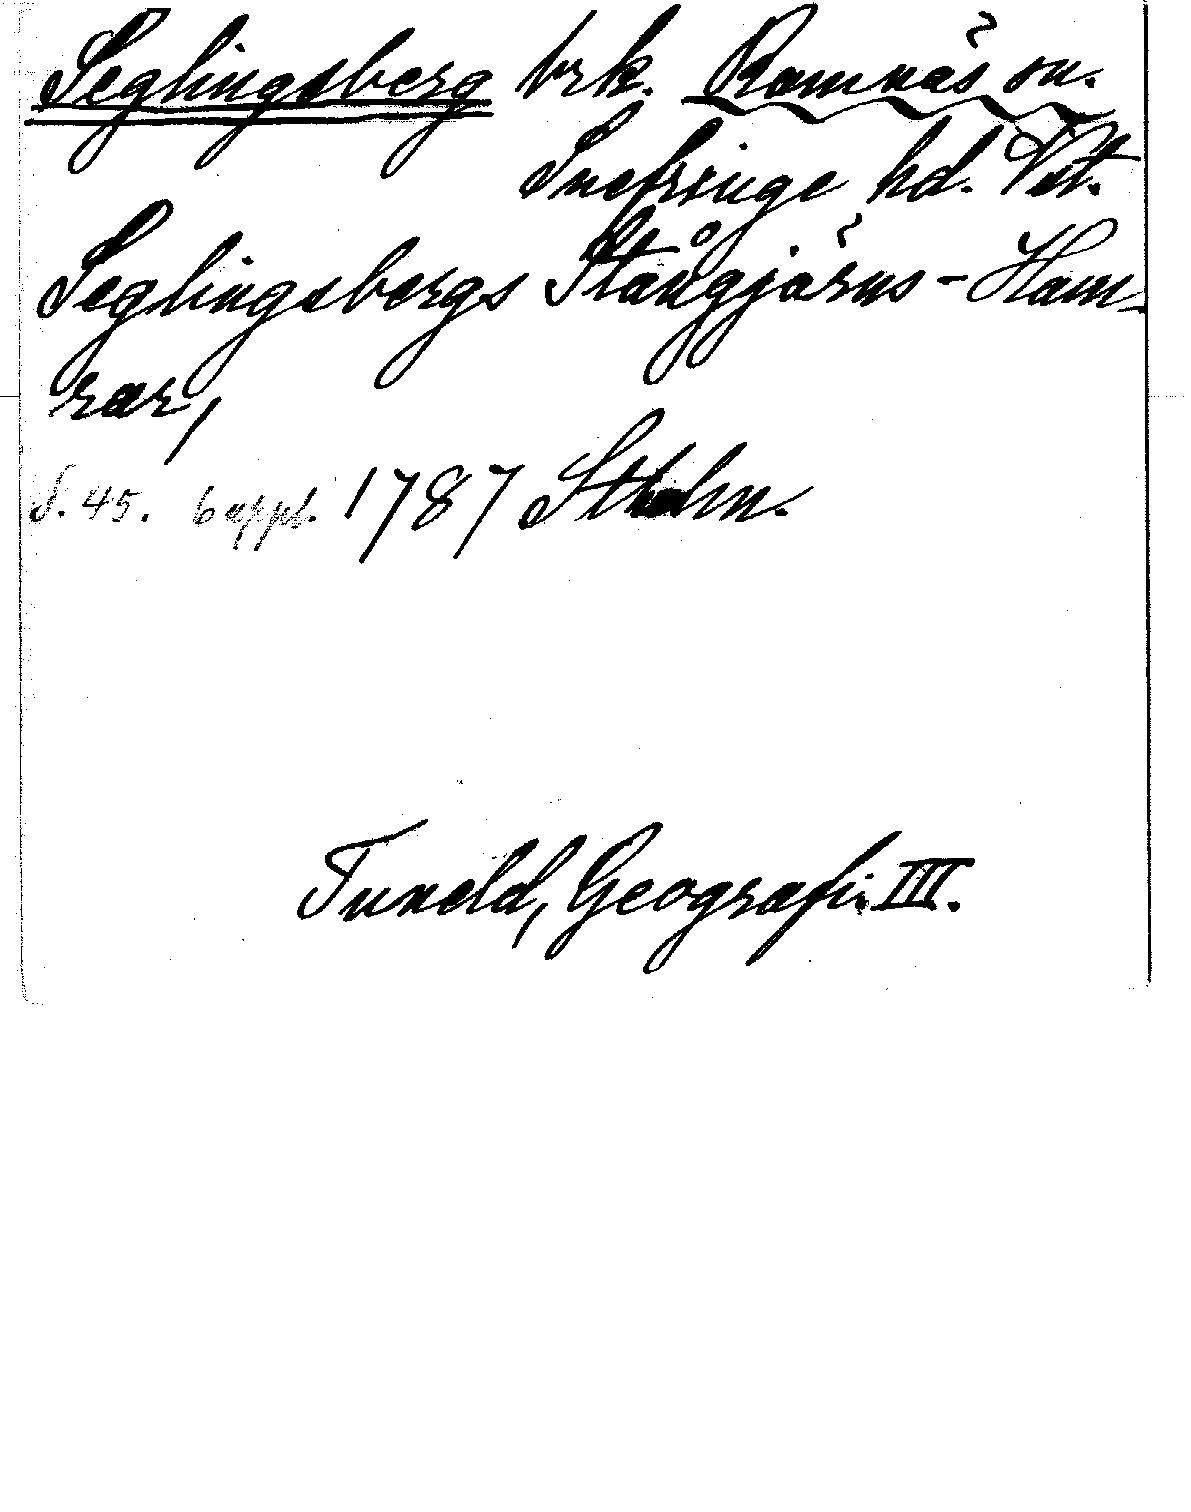 Seglingsberg brk. Ramnäs sn.
Snefringe hd. Vstm.
Seglingsbergs Stångjärns-Ham-
rar,
S. 45. 6 uppl. 1787 Stholm.
Tuneld, Geografi. III.